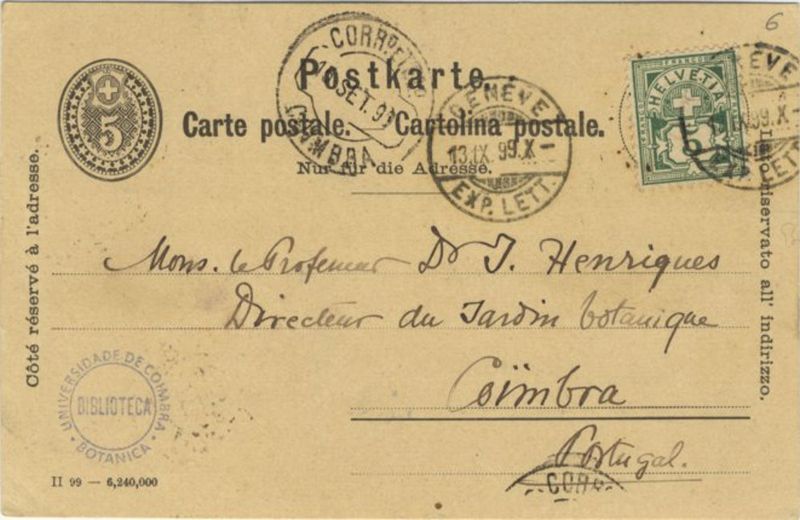 6
Postkarte.
Carte postale. Cartolina postale.
Nur für die Adresse.
5
CORREIO
SET. 99
COIMBRA
GENÈVE
13.IX.99.X-
EXP. LETT.
FRANCO
HELVETIA
GENÈVE
IX.99.X-
EXP. LETT.
Côté réservé à l'adresse.
Lato riservato all' indirizzo.
Mons. le Professeur Dr J. Henriques
Directeur du Jardin botanique
Coïmbra
Portugal.
UNIVERSIDADE DE COIMBRA
BIBLIOTECA
BOTANICA
CORR
II 99 — 6,240,000